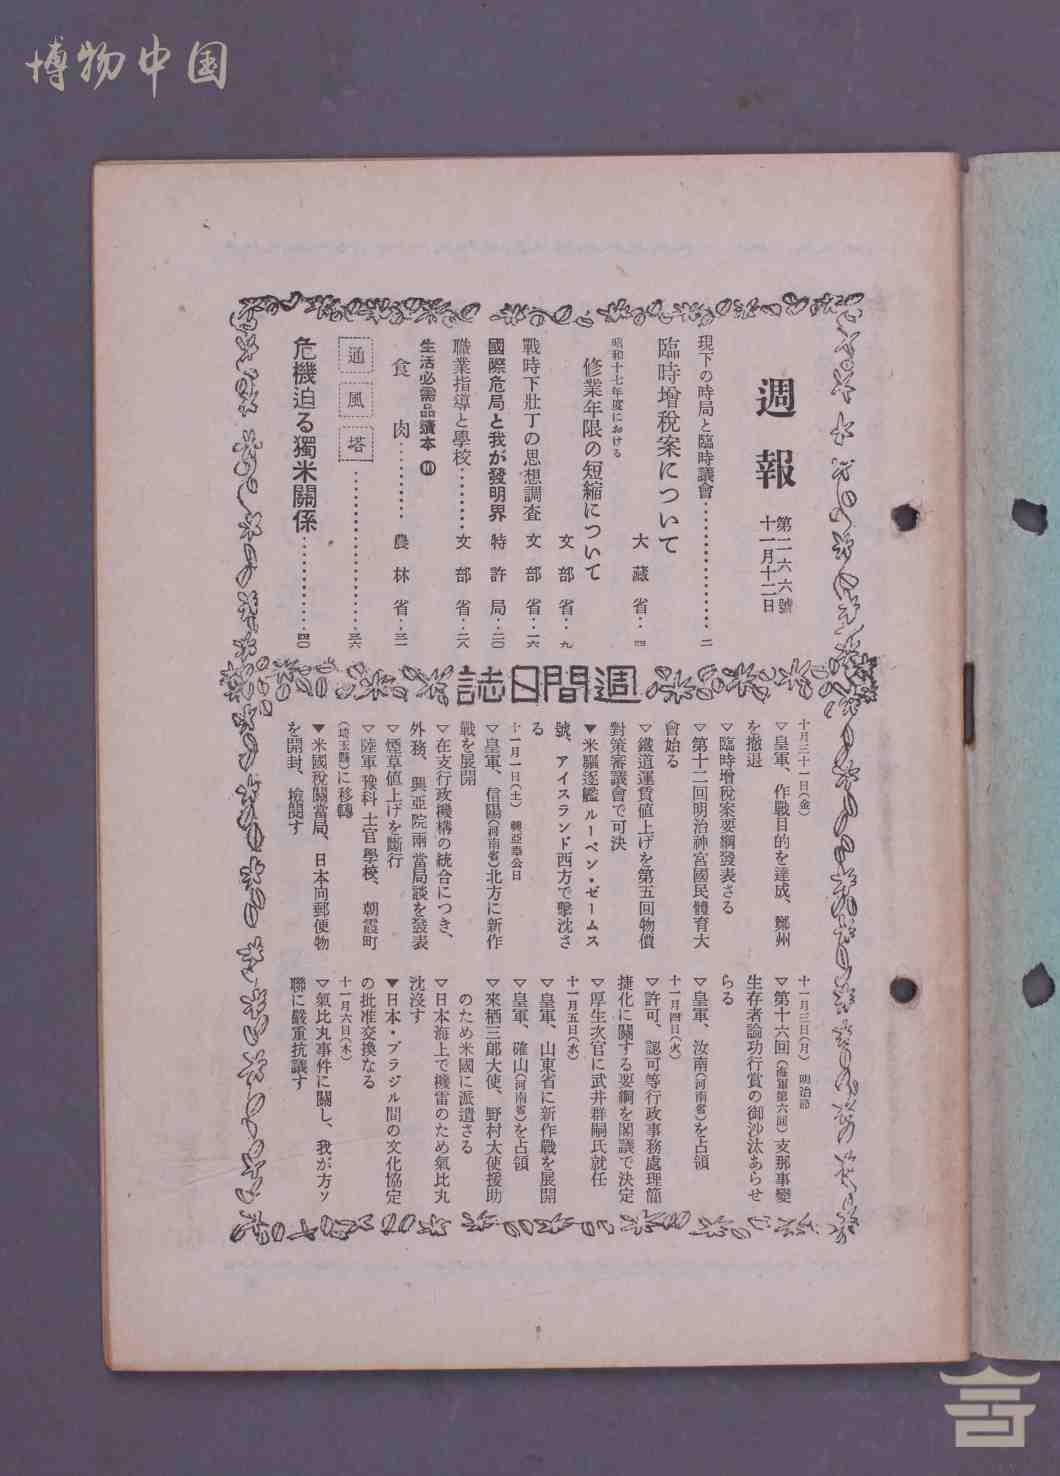 博物中国
週報
第二六六號
十一月十二日
現下の時局と臨時議會……………二
臨時增稅案について
大藏省‥四
昭和十七年度における
修業年限の短縮について
文部省‥九
戰時下壯丁の思想調査 文部省‥一六
國際危局と我が發明界 特許局‥二〇
職業指導と學校………文部省‥二八
生活必需品讀本⑪
食肉…………農林省‥三一
通風塔……………………三六
危機迫る獨米關係…………四〇
週間日誌
十月三十一日(金)
▽皇軍、作戰目的を達成、鄭州
を撤退
▽臨時增稅案要綱發表さる
▽第十二回明治神宮國民體育大
會始る
▽鐵道運賃値上げを第五回物價
對策審議會で可決
▼米驅逐艦ルーベン・ゼームス
號、アイスランド西方で擊沈さ
る
十一月一日(土) 興亞奉公日
▽皇軍、信陽(河南省)北方に新作
戰を展開
▽在支行政機構の統合につき、
外務、興亞院兩當局談を發表
▽煙草値上げを斷行
▽陸軍豫科士官學校、朝霞町
(埼玉縣)に移轉
▼米國稅關當局、日本向郵便物
を開封、檢閱す
十一月三日(月) 明治節
▽第十六回(海軍第六回)支那事變
生存者論功行賞の御沙汰あらせ
らる
▽皇軍、汝南(河南省)を占領
十一月四日(火)
▽許可、認可等行政事務處理簡
捷化に關する要綱を閣議で決定
▽厚生次官に武井群嗣氏就任
十一月五日(水)
▽皇軍、山東省に新作戰を展開
▽皇軍、確山(河南省)を占領
▽來栖三郎大使、野村大使援助
のため米國に派遣さる
▽日本海上で機雷のため氣比丸
沈沒す
▼日本・ブラジル間の文化協定
の批准交換なる
十一月六日(木)
▽氣比丸事件に關し、我が方ソ
聯に嚴重抗議す